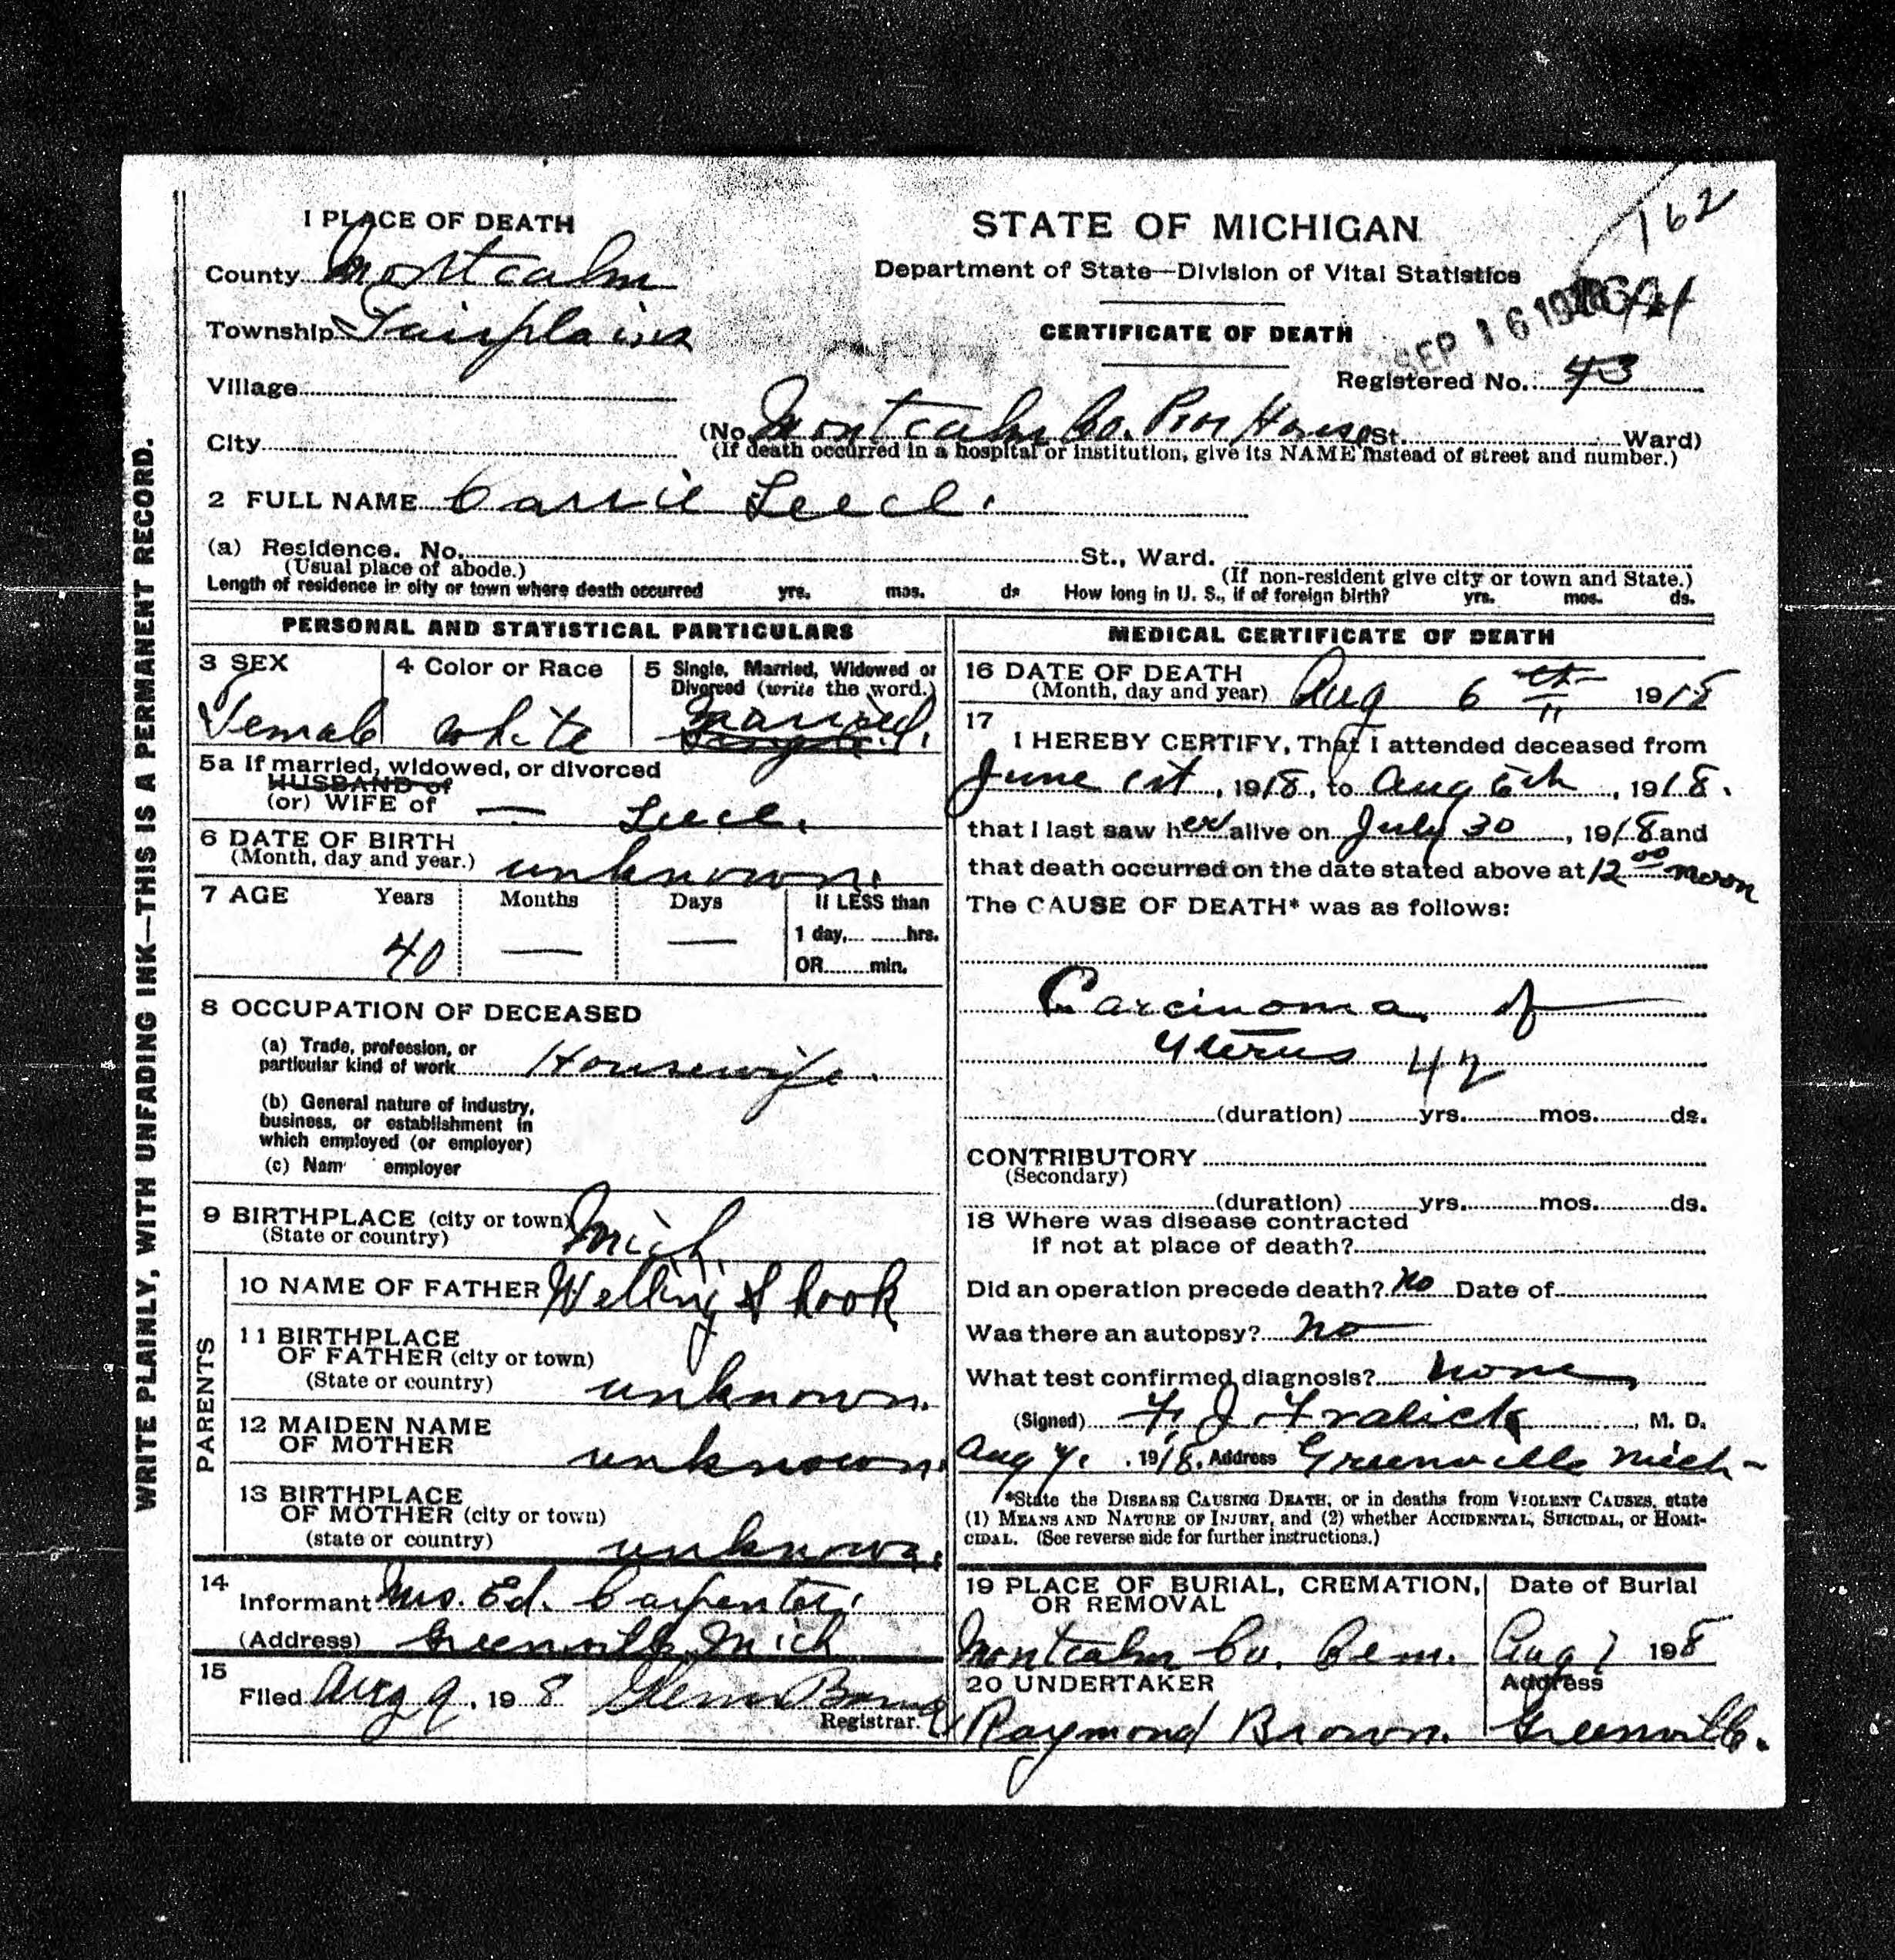 WRITE PLAINLY, WITH UNFADING INK—THIS IS A PERMANENT RECORD.
1 PLACE OF DEATH
County Montcalm
Township Fairplains
Village
City
STATE OF MICHIGAN
Department of State—Division of Vital Statistics
CERTIFICATE OF DEATH
162
SEP 16 19
Registered No. 43
(No. Montcalm Co. Poor House St. Ward)
(If death occurred in a hospital or institution, give its NAME instead of street and number.)
2 FULL NAME Carrie Leece.
(a) Residence. No. St., Ward.
(Usual place of abode.) (If non-resident give city or town and State.)
Length of residence in city or town where death occurred yrs. mos. ds. How long in U. S., if of foreign birth? yrs. mos. ds.
PERSONAL AND STATISTICAL PARTICULARS
3 SEX 4 Color or Race 5 Single, Married, Widowed or
Divorced (write the word.)
Female white married
5a If married, widowed, or divorced
HUSBAND of
(or) WIFE of — Leece.
6 DATE OF BIRTH
(Month, day and year.) unknown.
7 AGE Years Months Days If LESS than
1 day, hrs.
40 — — OR min.
8 OCCUPATION OF DECEASED
(a) Trade, profession, or
particular kind of work Housewife.
(b) General nature of industry,
business, or establishment in
which employed (or employer)
(c) Nam employer
9 BIRTHPLACE (city or town)
(State or country) Mich.
PARENTS
10 NAME OF FATHER Shook
11 BIRTHPLACE
OF FATHER (city or town)
(State or country) unknown.
12 MAIDEN NAME
OF MOTHER unknown.
13 BIRTHPLACE
OF MOTHER (city or town)
(state or country) unknown.
14
Informant Mrs. Ed. Carpenter.
(Address) Greenville, Mich
15
Filed Aug 9, 19 8 Glenn
Registrar.
MEDICAL CERTIFICATE OF DEATH
16 DATE OF DEATH
(Month, day and year) Aug 6 th 1918
17
I HEREBY CERTIFY, That I attended deceased from
June 1st, 1918, to Aug 6th, 1918.
that I last saw her alive on July 30, 1918 and
that death occurred on the date stated above at 12 00 noon
The CAUSE OF DEATH* was as follows:
Carcinoma of
Uterus 42
(duration) yrs. mos. ds.
CONTRIBUTORY
(Secondary)
(duration) yrs. mos. ds.
18 Where was disease contracted
if not at place of death?
Did an operation precede death? No Date of
Was there an autopsy? no
What test confirmed diagnosis? none
(Signed) F. J. Fralick, M. D.
Aug 7, 1918, Address Greenville Mich-
*State the DISEASE CAUSING DEATH, or in deaths from VIOLENT CAUSES, state
(1) MEANS AND NATURE OF INJURY, and (2) whether ACCIDENTAL, SUICIDAL, or HOMI-
CIDAL. (See reverse side for further instructions.)
19 PLACE OF BURIAL, CREMATION, Date of Burial
OR REMOVAL
Montcalm Co. Cem. Aug 7 198
20 UNDERTAKER Address
Raymond Brown. Greenville.